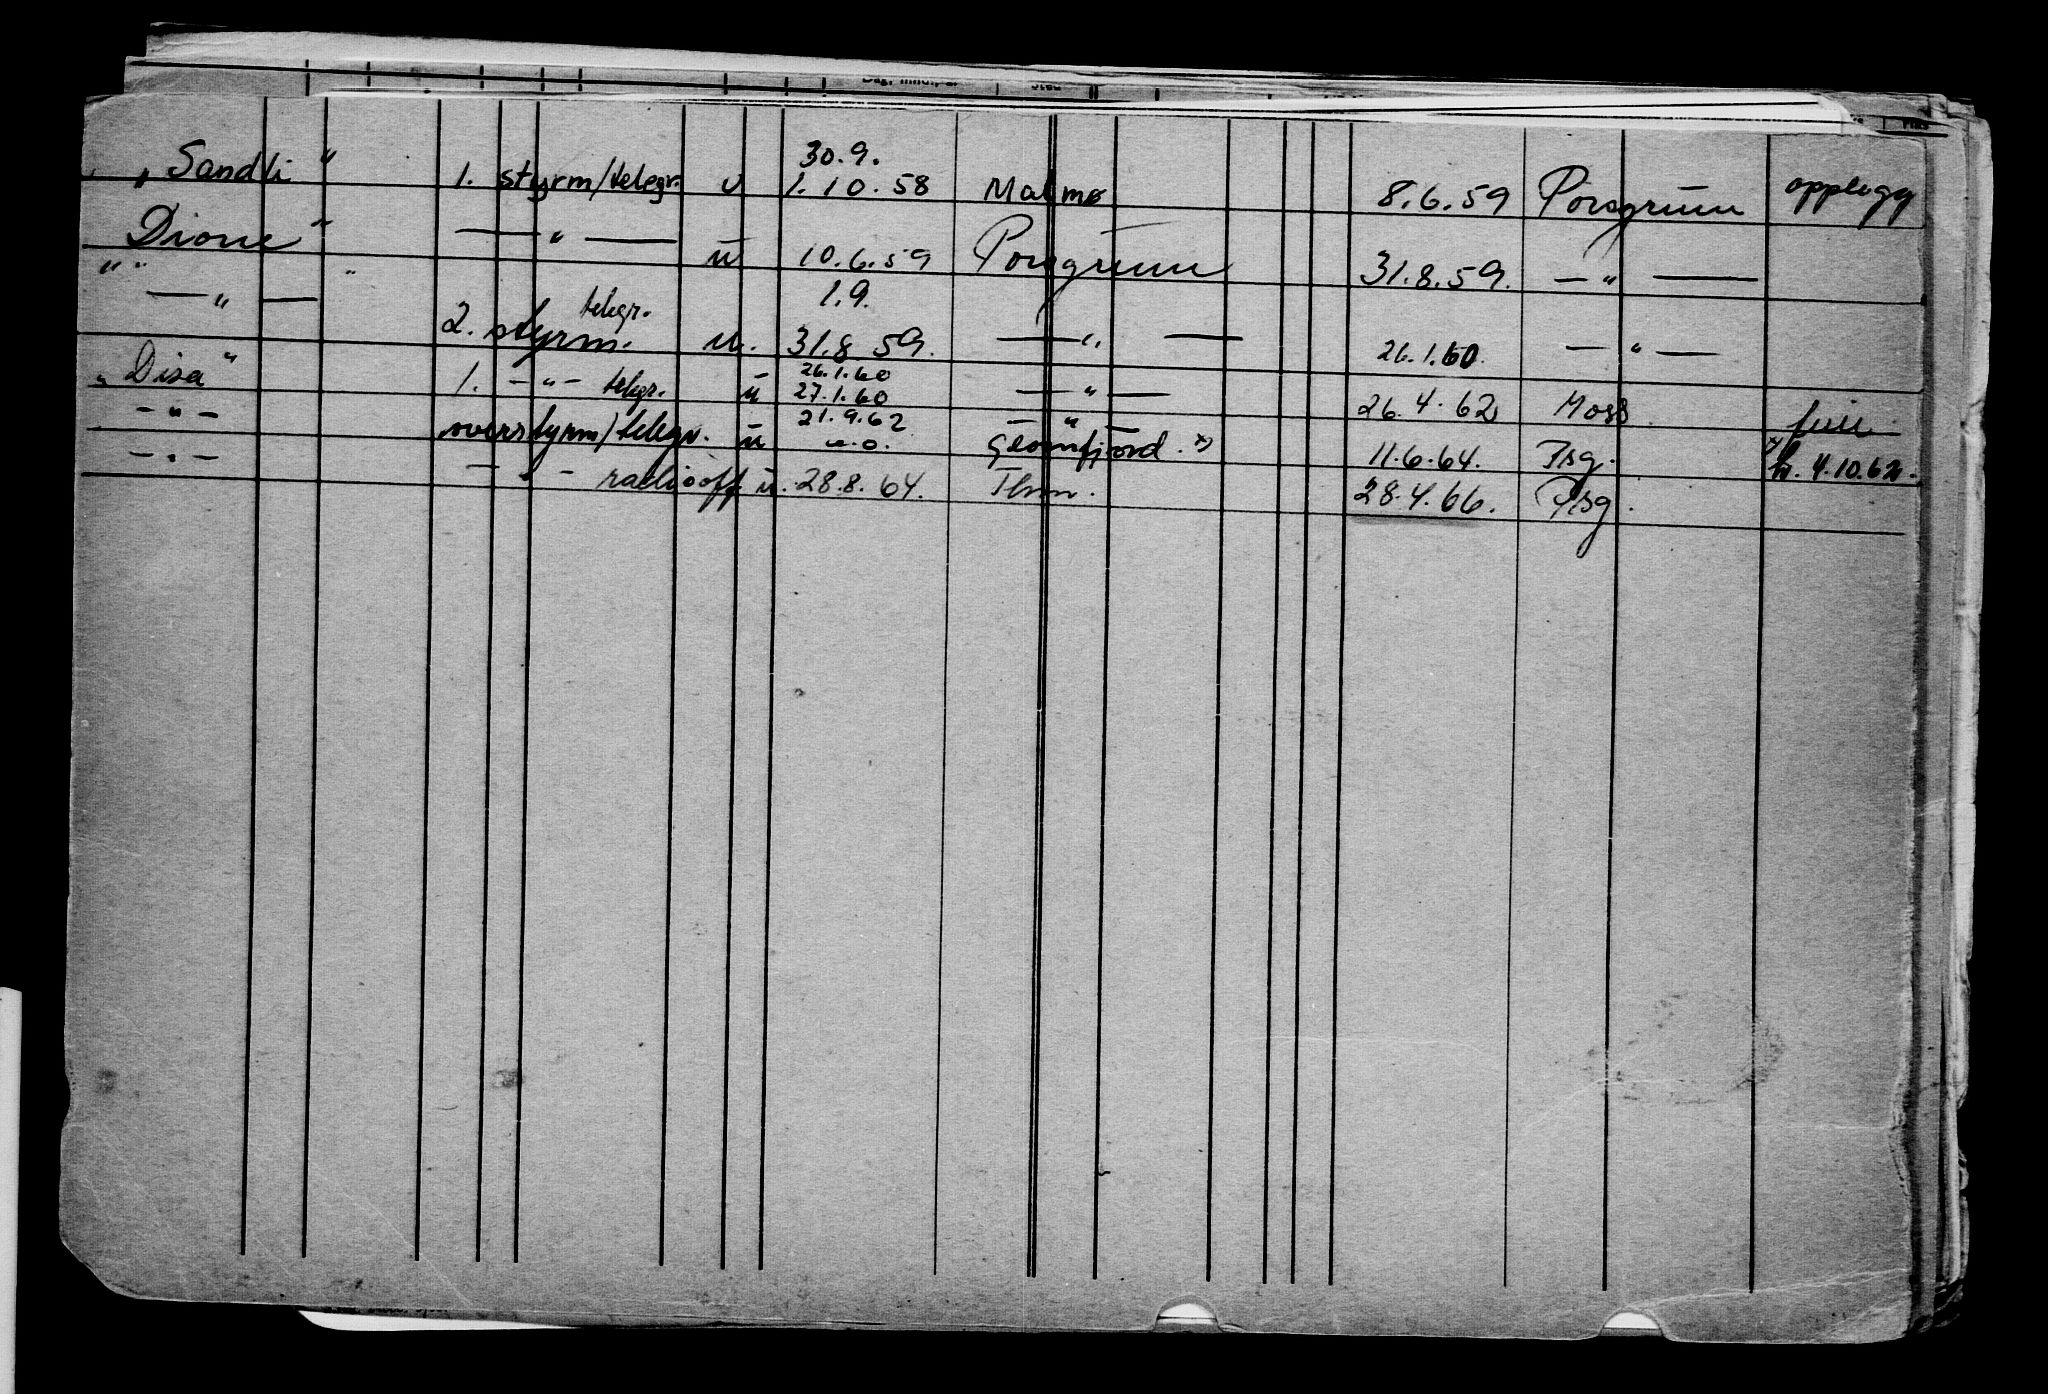 „Sandli" 1. styrm/telegr. u 30.9. 1.10.58 Malmø 8.6.59 Porsgrunn opplegg
Dione" — " — u 10.6.59 Porsgrunn 31.8.59. — " —
— " — 2. styrm. telegr. u. 1.9. 31.8.59. — " — 26.1.60. — " —
„Disa" 1. - " - telegr. u 26.1.60 27.1.60 — " — 26.4.62 Moss ferie
- " - overstyrm/telegr. u 21.9.62 a.o. Glomfjord. x) 11.6.64. Psg. x) h. 4.10.62.
- " - - " - radiooff u. 28.8.64. 28.4.66. Psg.